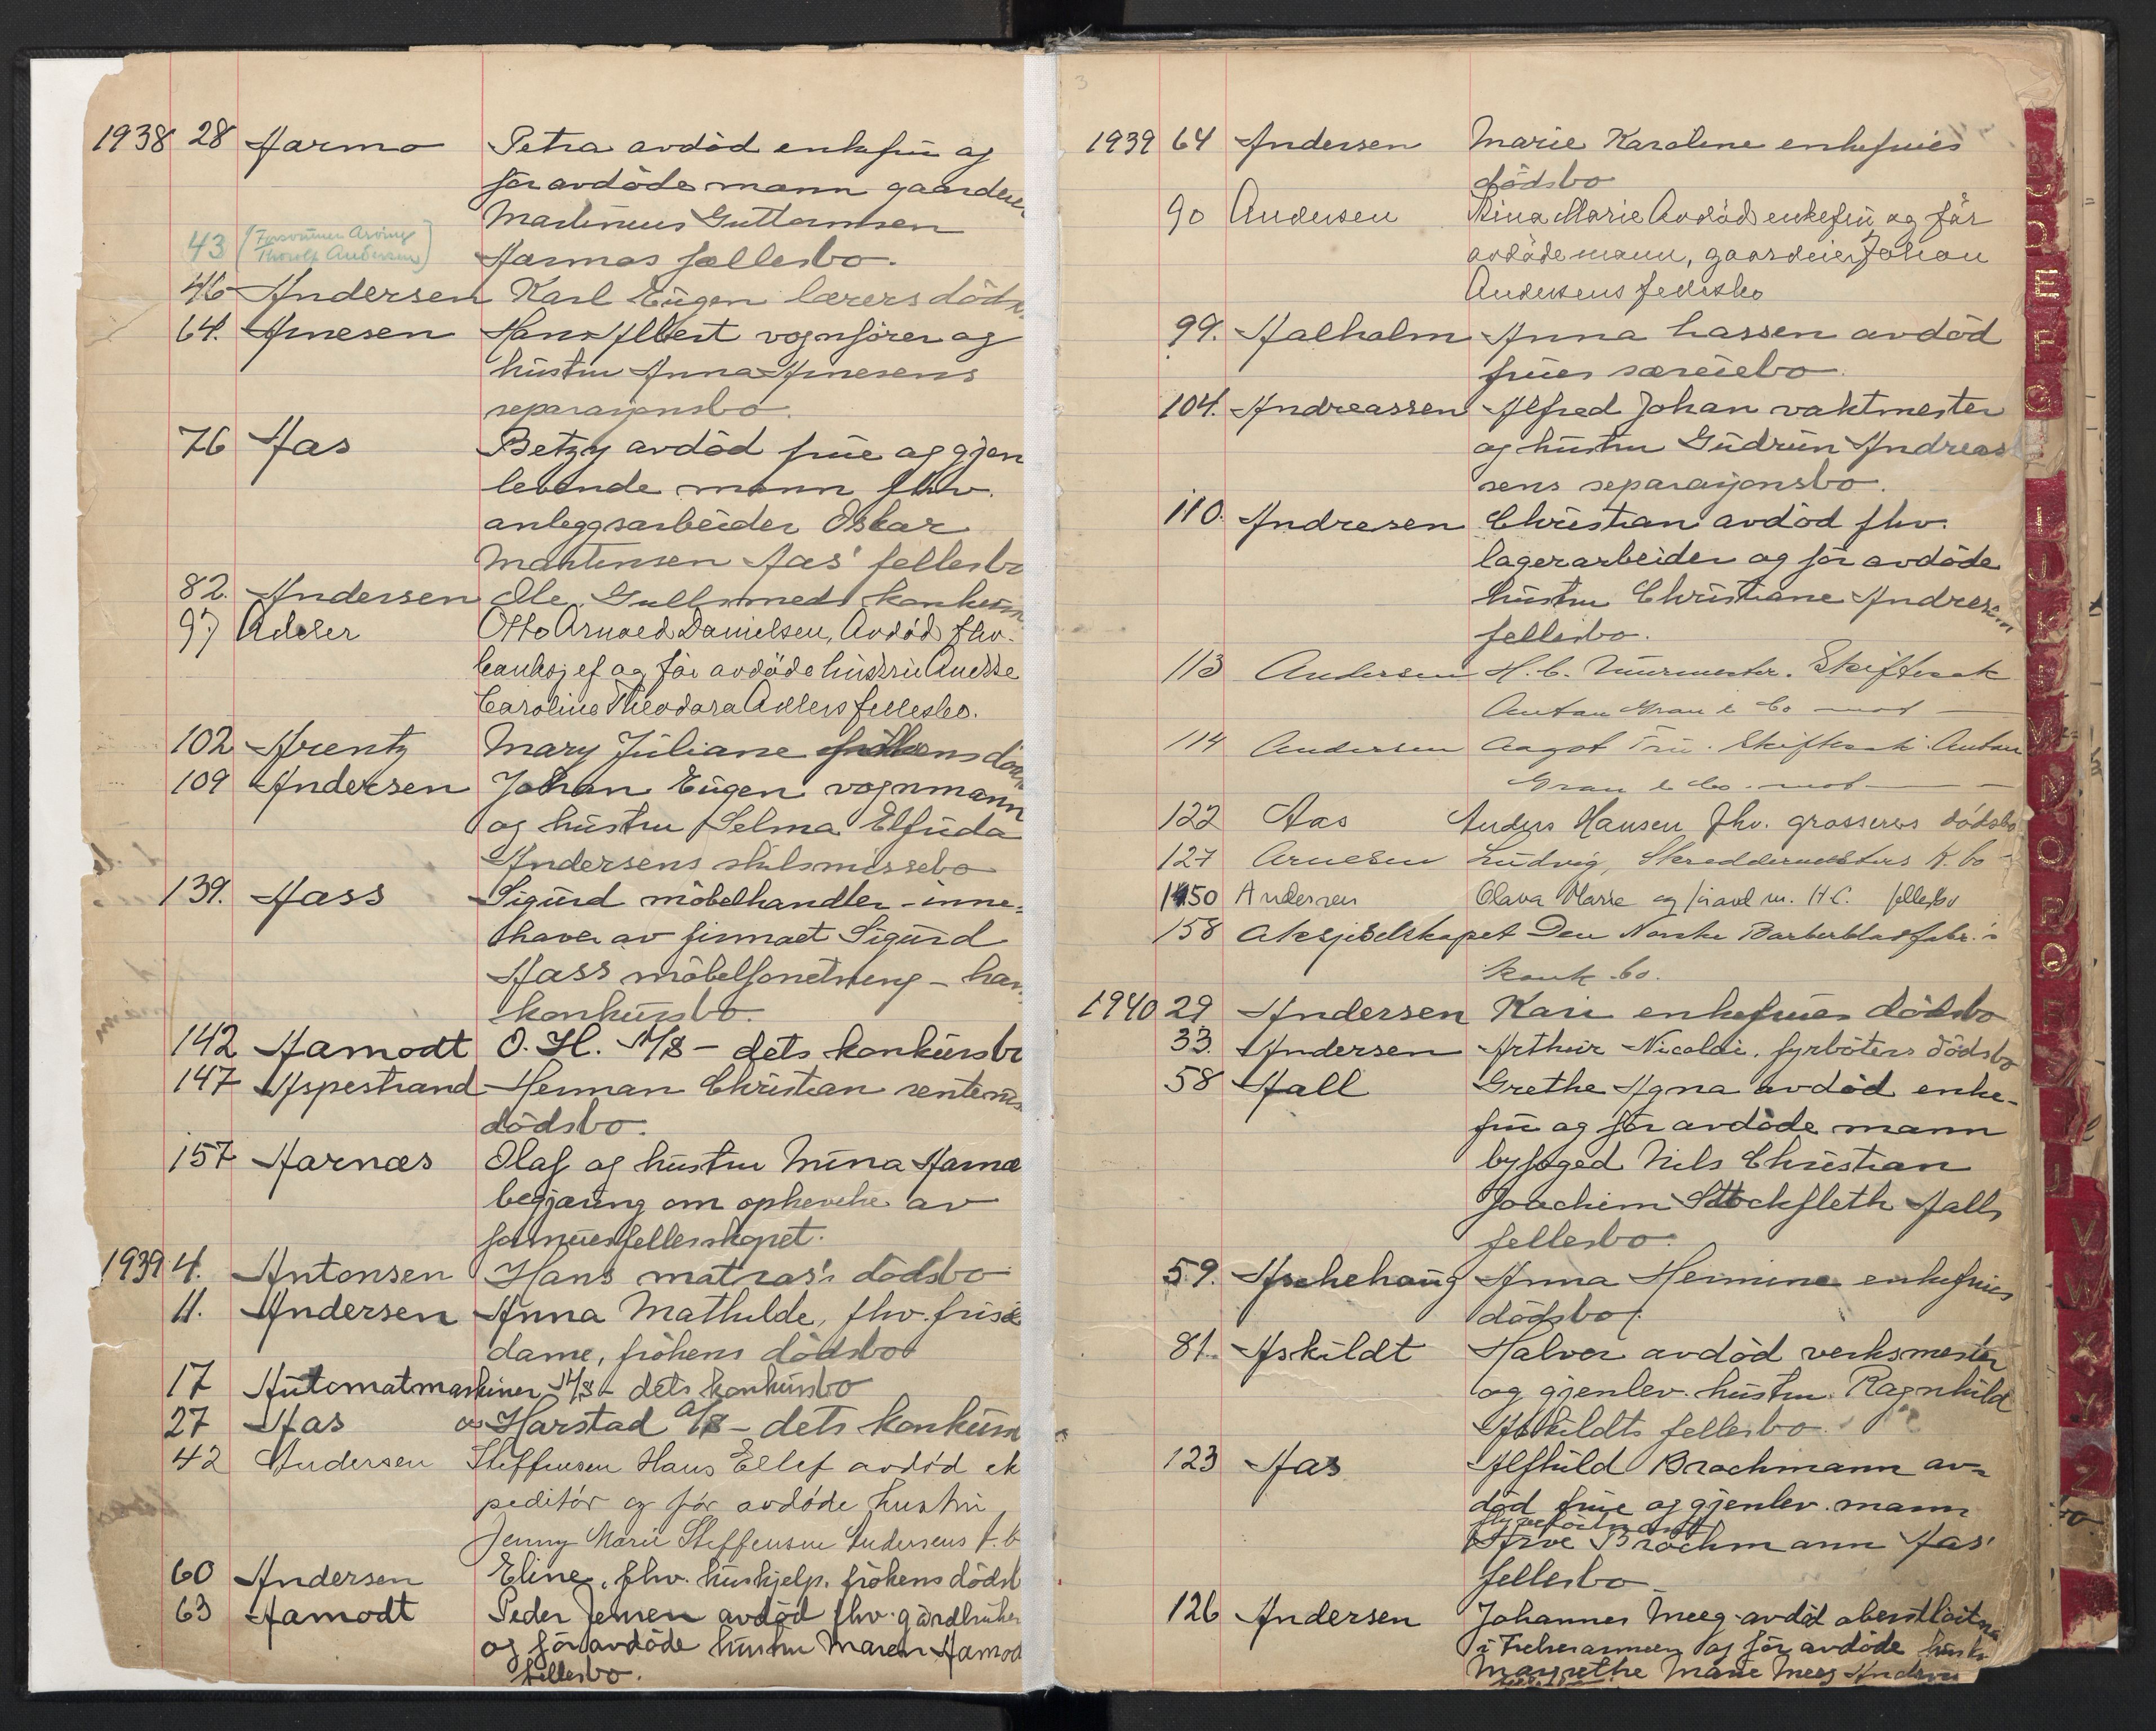 1938 28 Aarmo Petra avdöd enkefrü og
för avdöde mann gaardeier
Martinius Guttormsen
43 (Forsvunnen Arving
Thorolf Andersen) Aarmos fellesbo.
46 Andersen Karl Eügen lærers döds
64. Arnesen Hans Albert vognförer og
hüstru Anna Arnesens
separasjonsbo.
76 Aas Betzy avdöd früe og gjen
levende mann fhv.
anleggsarbeider Oskar
Martinsen Aas' fellesbo
82. Andersen Ole, Gullsmeds konkürs
97 Adeler Otto Arnoed Danielsen, Avdöd fhv.
banksjef og för avdöde hüstrü
Caroline Theodora Adelers fellesbo.
102 Arentz Mary Jüliane frökens döds
109 Andersen Johan Eügen vognmann
og hüstru Selma Elfrida
Andersens skilsmissebo
139. Aass Sigürd möbelhandler - inne-
haver av firmaet Sigürd
Aass möbelforretning - hans
konkürsbo.
142 Aamodt O. H. A/S - dets konkürsbo
147 Aspestrand Herman Christian rentenists
dödsbo.
157 Aarnæs Olaf og hüstru Mina Aarnæs
begjæring om ophevelse av
formüesfellesskapet.
1939 4. Antonsen Hans matros's dödsbo
11. Andersen Anna Mathilde, fhv. frisör
dame, frökens dödsbo
17 Aütomatmaskiner A/S - dets konkürsbo
27 Aas og Harstad A/S - dets konkürs
42 Andersen Steffensen Hans Ellef avdöd ek
peditör og för avdöde hustrü
Jenny Marie Steffensen Andersens f. b
60 Andersen Eline, fhv. hüshjelp, frökens dödsb
63 Aamodt Peder Jensen avdöd fhv. gårdbruker
og för avdöde hüstru Maren Aamod
fellesbo.
3
1939 64 Andersen Marie Karoline enkefrües
dödsbo
90 Andersen Stina Marie Avdöd enkefrü og för
avdöde mann, gaardeier Johan
Andersens fellesbo
99. Aalholm Anna Lassen avdöd
frües særeiebo.
104. Andreassen Alfred Johan vaktmester
og hüstru Güdrün Andreas
sens separasjonsbo.
110. Andresen Christian avdöd fhv.
lagerarbeider og för avdöde
hüstru Christiane Andresens
fellesbo.
113 Andersen H. C. Mürmester. Skiftesak
Anton Gran & Co mot —
114 Andersen Aagot Frü. Skiftesak Anton
Gran & Co. mot —
122 Aas Anders Hansen fhv. grosserers dödsbo
127 Arnesen Lüdvig, Skreddermesters K. bo
150 Andersen Olava Marie og föravd m. H.C. fellesbo
158 Aksjeselskapet Den Norske Barberbladfabr. i
konk. bo.
1940 29 Andersen Kari enkefrües dödsbo
33. Andersen Arthür Nicolai, fyrböters dödsbo
58 Aall Grethe Agna avdöd enke-
frü og för avdöde mann
byfoged Nils Christian
Joachim Stockfleth Aalls
fellesbo.
59. Aschehoüg Anna Hermine enkefrües
dödsbo.
81. Askildt Halvor avdöd verksmester
og gjenlev. hüstru Ragnhild
Askildts fellesbo.
123 Aas Alfhild Brochmann av-
död früe og gjenlev. mann
Arve Brochmann Aas'
fellesbo
126 Andersen Johannes Meeg avdöd oberstlöitnant
i Frelsesarmeen og för avdöde hüstr
Margrethe Marie Meeg Anders
D
E
F
G
I
J
K
M
N
O
P
Q
R
S
T
U
V
W
X
Y
Z